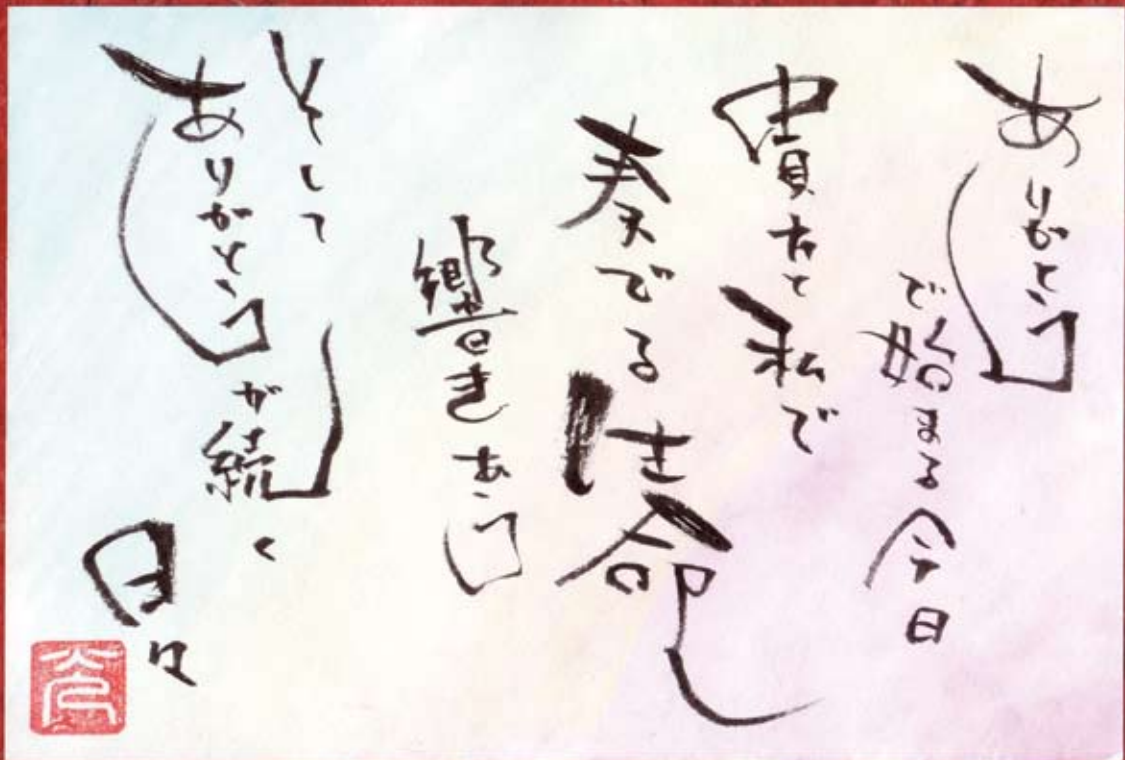 ありがとう
で始まる今日
貴方と私で
奏でる生命
響きあう
そして
ありがとうが続く
日々